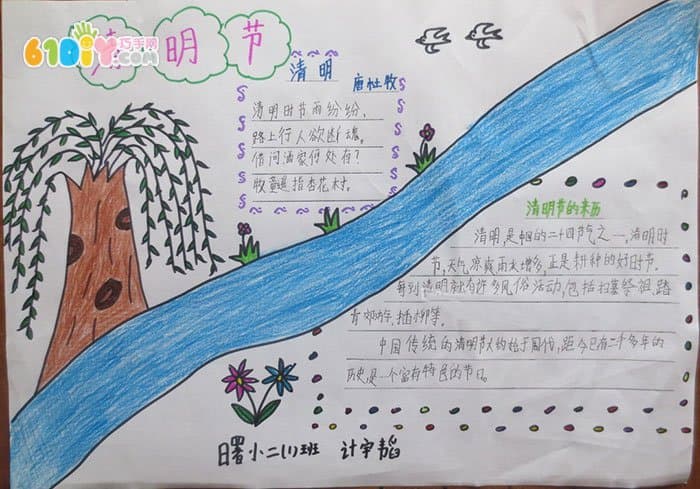 61DIY巧手网
.COM
清明节
清明
唐杜牧
清明时节雨纷纷,
路上行人欲断魂。
借问酒家何处有?
牧童遥指杏花村。
清明节的来历
清明,是中国的二十四节气之一,清明时
节,天气凉爽雨水增多,正是耕种的好时节。
每到清明就有许多风俗活动,包括扫墓祭祖、踏
青郊游、插柳等。
中国传统的清明节大约始于周代,距今已有二千多年的
历史,是一个富有特色的节日。
曙小二(1)班 计宇韬